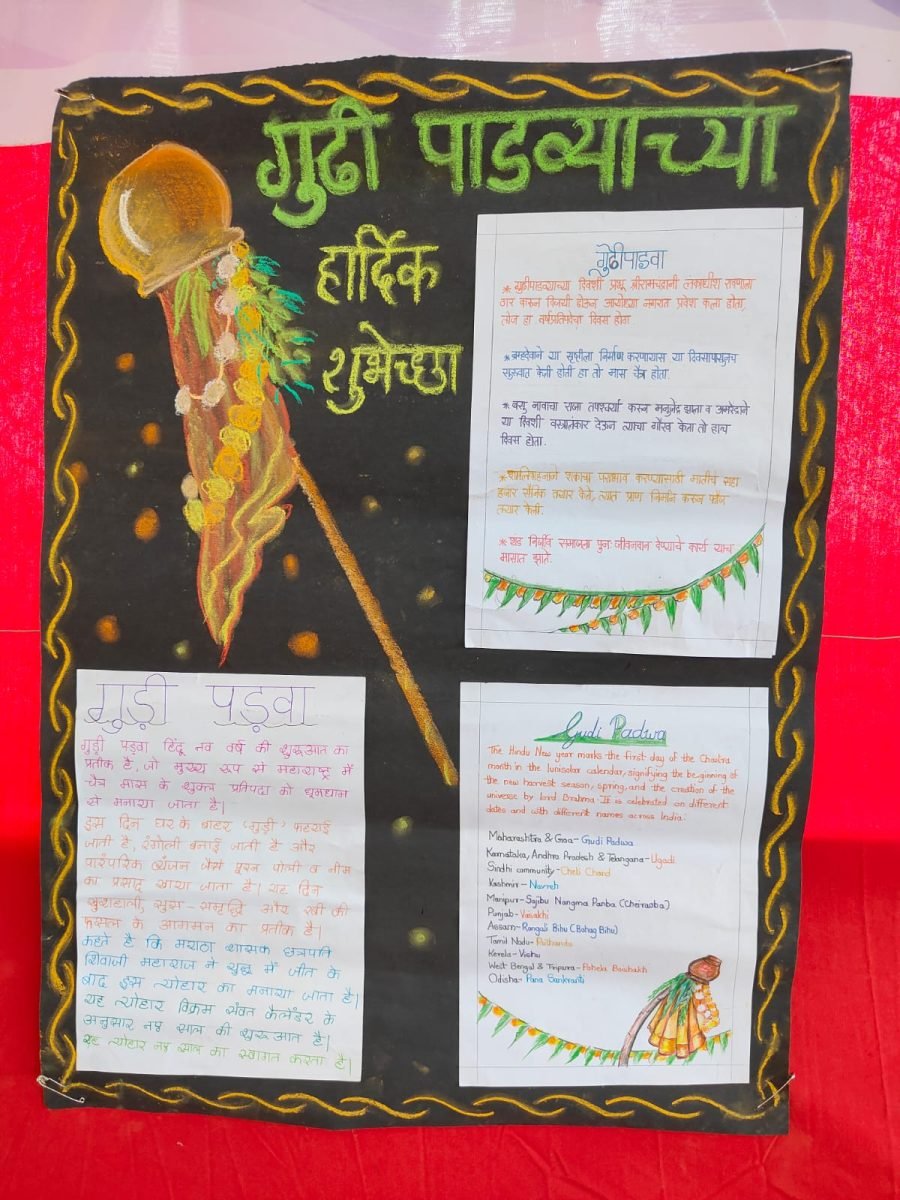 गुढी पाडव्याच्या
हार्दिक
शुभेच्छा
गुढीपाडवा
* गुढीपाडव्याच्या दिवशी प्रभू श्रीरामचंद्रांनी लंकाधीश रावणाला
ठार करून विजयी होऊन अयोध्या नगरात प्रवेश केला होता,
तोच हा वर्षप्रतिपदेचा दिवस होता.
* ब्रम्हदेवाने या सृष्टीला निर्माण करण्यास या दिवसापासूनच
सुरुवात केली होती हा तो मास चैत्र होता.
* वसू नावाचा राजा तपश्चर्या करून मनुजेंद्र झाला व अमरेंद्राने
या दिवशी वस्त्रालंकार देऊन त्याचा गौरव केला तो हाच
दिवस होता.
* शालिवाहनाने शकांचा पराभव करण्यासाठी मातीचे सहा
हजार सैनिक तयार केले, त्यात प्राण निर्माण करून फौज
तयार केली.
* षंढ निर्जीव समाजाला पुनः जीवनदान देण्याचे कार्य याच
मासात झाले.
गुड़ी पड़वा
गुड़ी पड़वा हिंदू नव वर्ष की शुरूआत का
प्रतीक है, जो मुख्य रूप से महाराष्ट्र में
चैत्र मास के शुक्ल प्रतिपदा को धूमधाम
से मनाया जाता है।
इस दिन घर के बाहर 'गुड़ी' फहराई
जाती है, रंगोली बनाई जाती है और
पारंपारिक व्यंजन जैसे पूरन पोली व नीम
का प्रसाद खाया जाता है। यह दिन
खुशहाली, सुख-समृद्धि और रबी की
फसल के आगमन का प्रतीक है।
कहते है कि मराठा शासक छत्रपति
शिवाजी महाराज ने युद्ध में जीत के
बाद इस त्योहार को मनाया जाता है।
यह त्योहार विक्रम संवत कैलेंडर के
अनुसार नए साल की शुरूआत है।
यह त्योहार नए साल का स्वागत करता है।
Gudi Padwa
The Hindu New year marks the first day of the Chaitra
month in the lunisolar calendar, signifying the beginning of
the new harvest season, spring, and the creation of the
universe by lord Brahma. It is celebrated on different
dates and with different names across India.
Maharashtra & Goa- Gudi Padwa
Karnataka, Andhra Pradesh & Telangana- Ugadi
Sindhi community- Cheti Chand
Kashmir- Navreh
Manipur- Sajibu Nangma Panba (Cheiraoba)
Punjab- Vaisakhi
Assam- Rangali Bihu (Bohag Bihu)
Tamil Nadu- Puthandu
Kerela- Vishu
West Bengal & Tripura- Pohela Boishakh
Odisha- Pana Sankranti